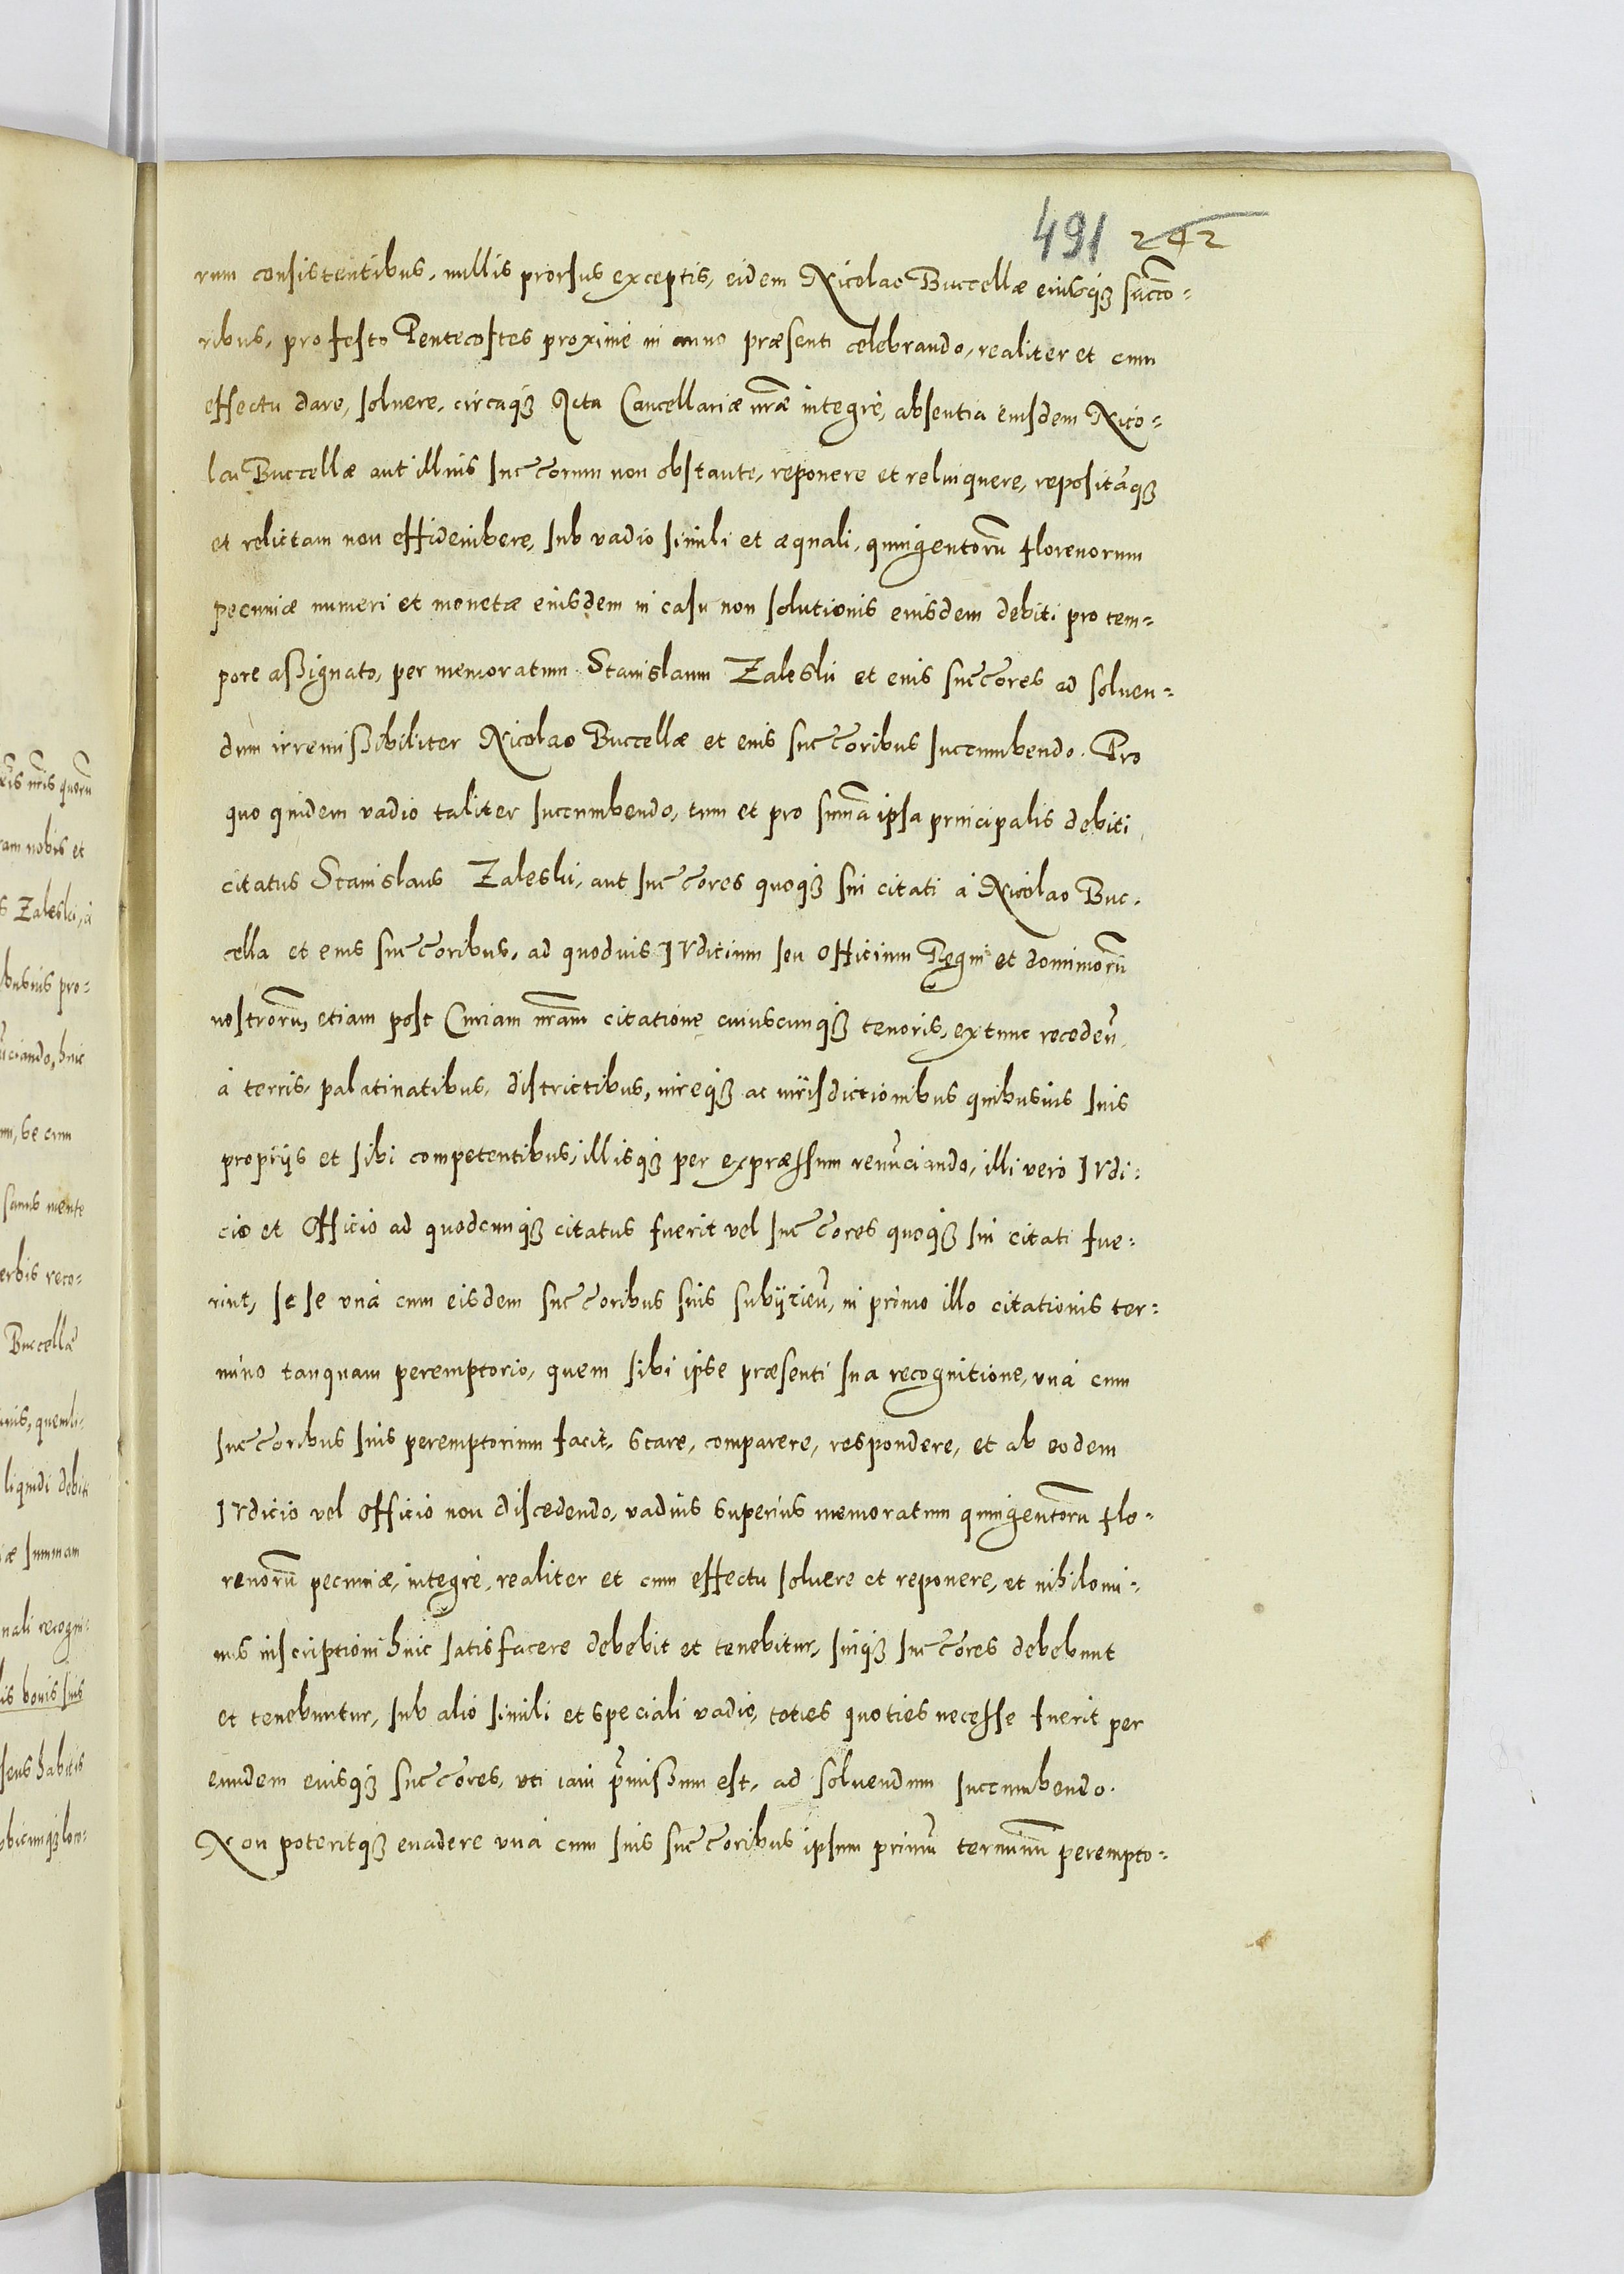 491 242
rum consistentibus, nullis prorsus exceptis, eidem Nicolao Buccellæ eiusq̃ȝ succo-
ribus, pro festo Pentecostes proximè in anno præsenti celebrando, realiter et cum
effectu dare, soluere, circaq̃ȝ Acta Cancellariæ nr̃æ integrè, absentia eiusdem Nico-
lai Buccellæ aut illius succorum non obstante, reponere et relinquere, repositamq̃ȝ
et relictam non effidenibere, sub vadio simili et æquali, quingentorũ florenorum
pecuniæ numeri et monetæ eiusdem in casu non solutionis eiusdem debiti pro tem-
pore aßignato, per memoratum Stanislaum Zaleski et eius succores ad soluen-
dum irremißibiliter Nicolao Buccellæ et eius succoribus succumbendo. Pro
quo quidem vadio taliter succumbendo, tum et pro sum̃a ipsa principalis debiti
citatus Stanislaus Zaleski, aut succores quoq̃ȝ sui citati à Nicolao Buc-
cella et eius succoribus, ad quoduis Iudicium seu Officium Regni et dominiorũ
nostrorum, etiam post Curiam nr̃am citatione cuiuscunq̃ȝ tenoris, extunc recedeñ.
à terris, palatinatibus, districtibus, iureq̃ȝ ac iurisdictionibus quibusuis suis
proprijs et sibi competentibus, illisq̃ȝ per expræssum renũciando, illi verò Iudi-
cio et Officio ad quodcunq̃ȝ citatus fuerit vel succores quoq̃ȝ sui citati fue-
rint, se se vnà cum eisdem succoribus suis subijcieñ, in primo illo citationis ter-
mino tanquam peremptorio, quem sibi ipse præsenti sua recognitione, vnà cum
succoribus suis peremptorium facit, stare, comparere, respondere, et ab eodem
Iudicio vel Officio non discedendo, vadius superius memoratum quingentorũ flo-
renorũ pecuniæ, integrè, realiter et cum effectu soluere et reponere, et nihilomi-
nus inscriptioni huic satisfacere debebit et tenebitur, suiq̃ȝ succores debebunt
et tenebuntur, sub alio simili et speciali vadio, toties quoties necesse fuerit per
eundem eiusq̃ȝ succores, vti iam p̃mißum est, ad soluendum succumbendo.
Non poteritq̃ȝ euadere vnà cum suis succoribus ipsum primũ terminũ perempto-